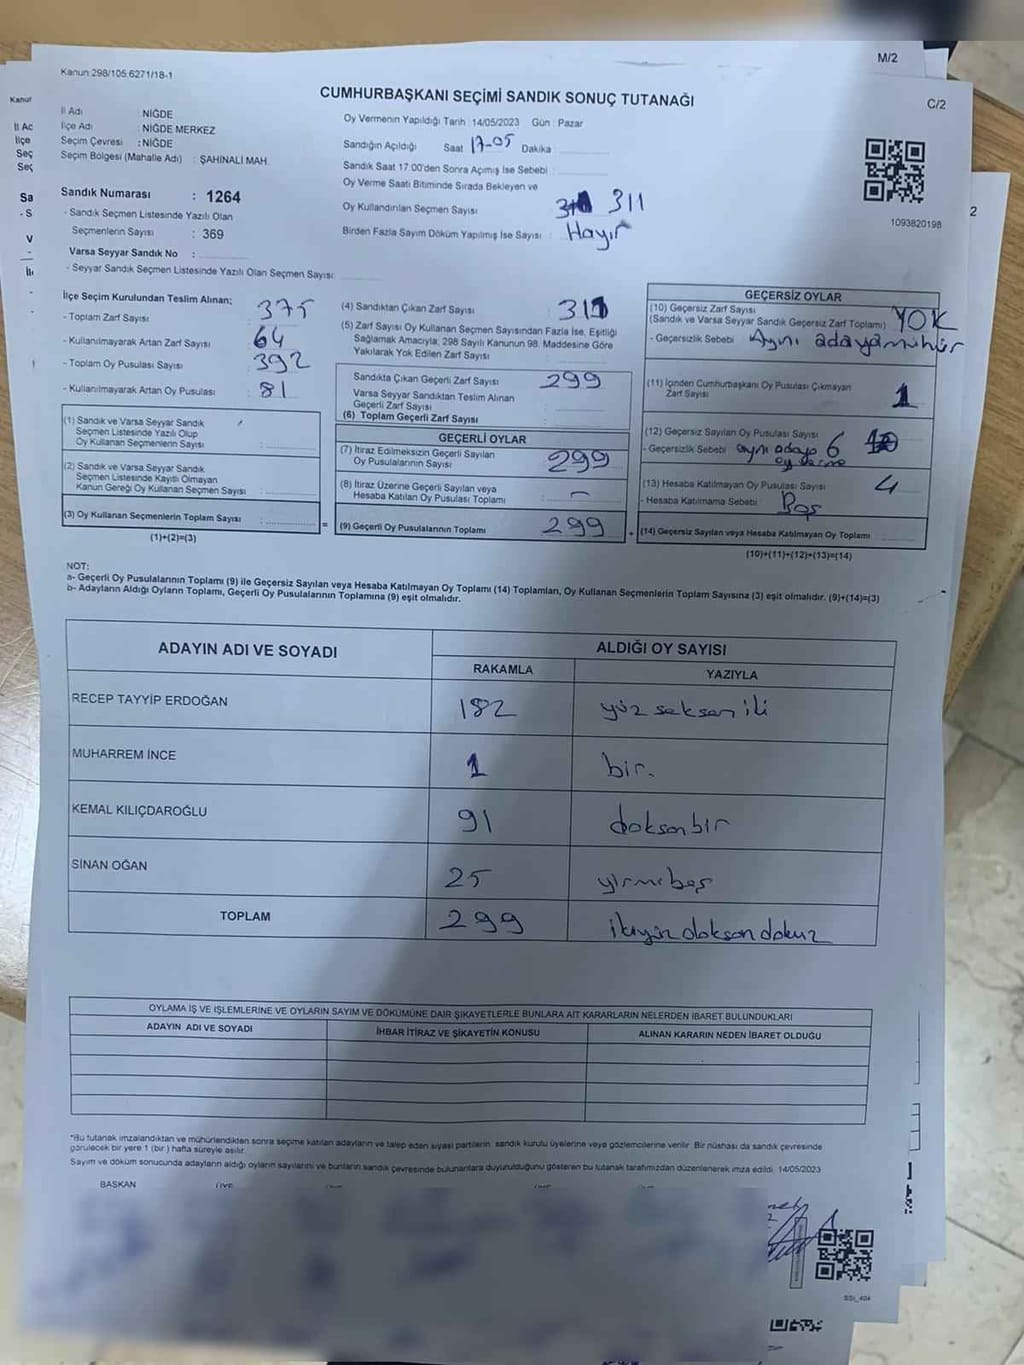 M/2
Kanun 298/105,6271/18-1
CUMHURBAŞKANI SEÇİMİ SANDIK SONUÇ TUTANAĞI
C/2
İl Adı NİĞDE
İlçe Adı : NİĞDE MERKEZ
Seçim Çevresi : NİĞDE
Seçim Bölgesi (Mahalle Adı) : ŞAHİNALİ MAH.
Oy Vermenin Yapıldığı Tarih : 14/05/2023 Gün : Pazar
Sandığın Açıldığı Saat 17-05 Dakika
Sandık Saat 17:00'den Sonra Açımış İse Sebebi :
Oy Verme Saati Bitiminde Sırada Bekleyen ve
Oy Kullandırılan Seçmen Sayısı 311
Birden Fazla Sayım Döküm Yapılmış İse Sayısı : Hayır
1093820198
Sandık Numarası : 1264
- Sandık Seçmen Listesinde Yazılı Olan
Seçmenlerin Sayısı : 369
Varsa Seyyar Sandık No :
- Seyyar Sandık Seçmen Listesinde Yazılı Olan Seçmen Sayısı:
İlçe Seçim Kurulundan Teslim Alınan;
- Toplam Zarf Sayısı : 375
- Kullanılmayarak Artan Zarf Sayısı : 64
- Toplam Oy Pusulası Sayısı : 392
- Kullanılmayarak Artan Oy Pusulası : 81
(1) Sandık ve Varsa Seyyar Sandık
Seçmen Listesinde Yazılı Olup
Oy Kullanan Seçmenlerin Sayısı :
(2) Sandık ve Varsa Seyyar Sandık
Seçmen Listesinde Kayıtlı Olmayan
Kanun Gereği Oy Kullanan Seçmen Sayısı :
(3) Oy Kullanan Seçmenlerin Toplam Sayısı :
(1)+(2)=(3)
=
(4) Sandıktan Çıkan Zarf Sayısı : 311
(5) Zarf Sayısı Oy Kullanan Seçmen Sayısından Fazla İse, Eşitliği
Sağlamak Amacıyla; 298 Sayılı Kanunun 98. Maddesine Göre
Yakılarak Yok Edilen Zarf Sayısı :
Sandıkta Çıkan Geçerli Zarf Sayısı 299
Varsa Seyyar Sandıktan Teslim Alınan
Geçerli Zarf Sayısı :
(6) Toplam Geçerli Zarf Sayısı :
GEÇERLİ OYLAR
(7) İtiraz Edilmeksizin Geçerli Sayılan
Oy Pusulalarının Sayısı : 299
(8) İtiraz Üzerine Geçerli Sayılan veya
Hesaba Katılan Oy Pusulası Toplamı : -
(9) Geçerli Oy Pusulalarının Toplamı : 299
+
GEÇERSİZ OYLAR
(10) Geçersiz Zarf Sayısı
(Sandık ve Varsa Seyyar Sandık Geçersiz Zarf Toplamı) : YOK
- Geçersizlik Sebebi : Aynı adaya mühür
(11) İçinden Cumhurbaşkanı Oy Pusulası Çıkmayan
Zarf Sayısı : 1
(12) Geçersiz Sayılan Oy Pusulası Sayısı : 6
- Geçersizlik Sebebi : aynı adaya
oy verme
(13) Hesaba Katılmayan Oy Pusulası Sayısı : 4
- Hesaba Katılmama Sebebi : Boş
(14) Geçersiz Sayılan veya Hesaba Katılmayan Oy Toplamı :
(10)+(11)+(12)+(13)=(14)
NOT:
a- Geçerli Oy Pusulalarının Toplamı (9) ile Geçersiz Sayılan veya Hesaba Katılmayan Oy Toplamı (14) Toplamları, Oy Kullanan Seçmenlerin Toplam Sayısına (3) eşit olmalıdır. (9)+(14)=(3)
b- Adayların Aldığı Oyların Toplamı, Geçerli Oy Pusulalarının Toplamına (9) eşit olmalıdır.
ADAYIN ADI VE SOYADI
ALDIĞI OY SAYISI
RAKAMLA YAZIYLA
RECEP TAYYİP ERDOĞAN 182 yüz seksen iki
MUHARREM İNCE 1 bir.
KEMAL KILIÇDAROĞLU 91 doksan bir
SİNAN OĞAN 25 yirmi beş
TOPLAM 299 ikiyüz doksan dokuz
OYLAMA İŞ VE İŞLEMLERİNE VE OYLARIN SAYIM VE DÖKÜMÜNE DAİR ŞİKAYETLERLE BUNLARA AİT KARARLARIN NELERDEN İBARET BULUNDUKLARI
ADAYIN ADI VE SOYADI İHBAR İTİRAZ VE ŞİKAYETİN KONUSU ALINAN KARARIN NEDEN İBARET OLDUĞU
*Bu tutanak imzalandıktan ve mühürlendikten sonra seçime katılan adayların ve talep eden siyasi partilerin sandık kurulu üyelerine veya gözlemcilerine verilir. Bir nüshası da sandık çevresinde
görülecek bir yere 1 (bir) hafta süreyle asılır.
Sayım ve döküm sonucunda adayların aldığı oyların sayılarını ve bunların sandık çevresinde bulunanlara duyurulduğunu gösteren bu tutanak tarafımızdan düzenlenerek imza edildi. 14/05/2023
BAŞKAN ÜYE